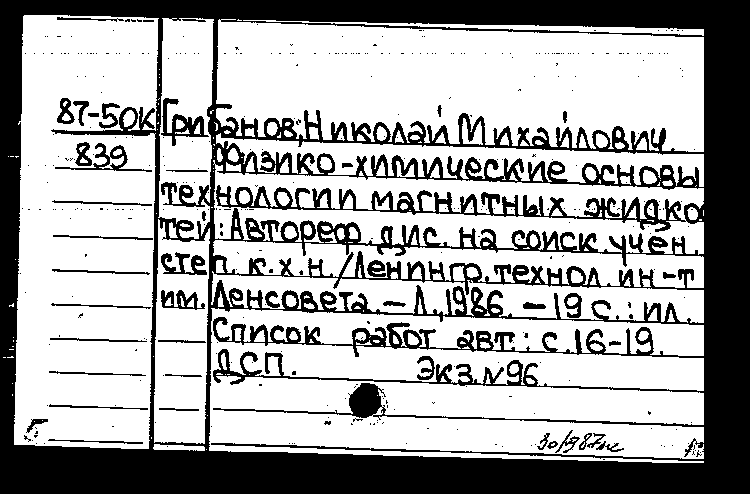 87-50К Грибанов, Николай Михайлович.
839 Физико-химические основы
технологии магнитных жидко
тей: Автореф. дис. на соиск. учен.
степ. к.х.н. / Ленингр. технол. ин-т
им. Ленсовета. – Л., 1986. – 19 с. : ил.
Список работ авт.: с. 16-19.
ДСП. Экз. № 96.
Б